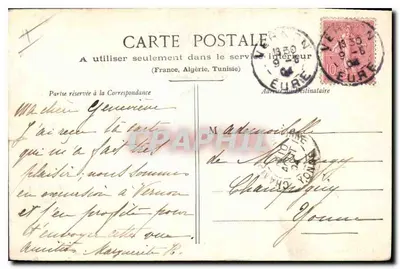 CARTE POSTALE
A utiliser seulement dans le service intérieur
(France, Algérie, Tunisie)
Partie réservée à la Correspondance
Adresse du Destinataire
VERNON
13 30
9 - 8
04
EURE
VERNON
13 30
9 - 8
04
EURE
Ma chère Geneviève
J'ai reçu ta carte
qui m'a fait bien
plaisir, nous sommes
en excursion à Vernon
et j'en profite pour
t'envoyer cette vue
amitiés Marguerite R.
Mademoiselle
de
Champigny
Yonne